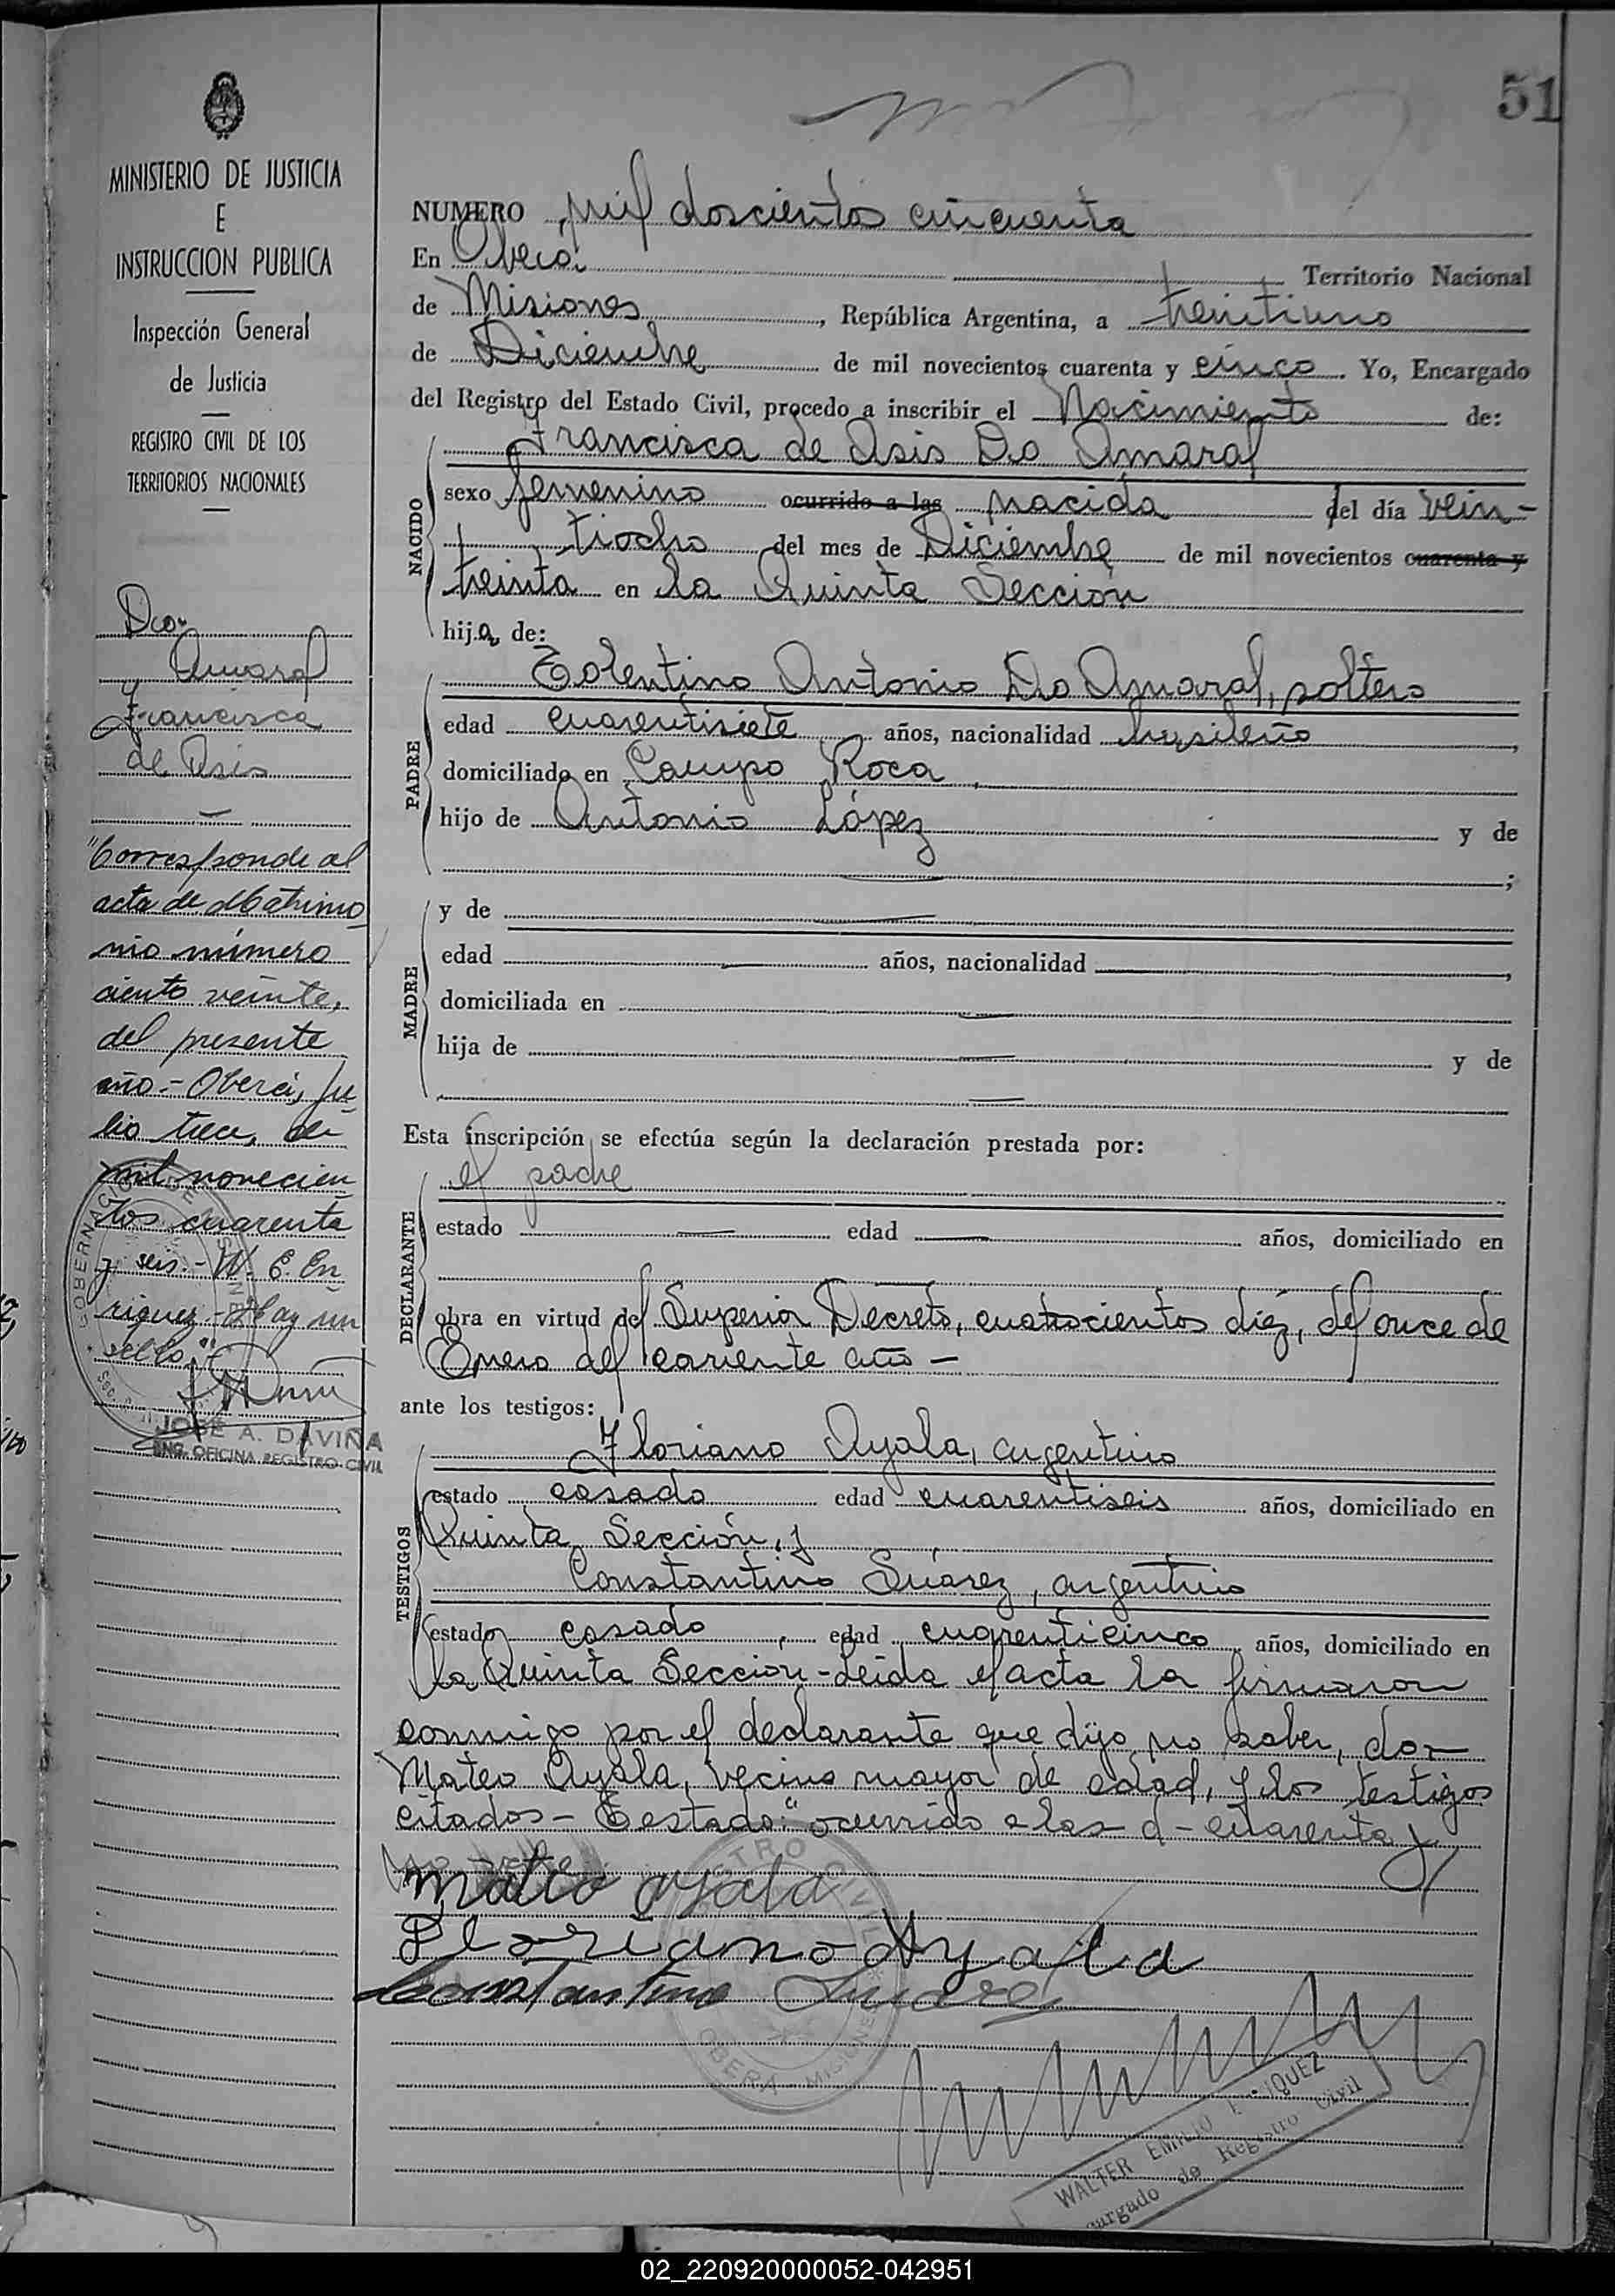 51
MINISTERIO DE JUSTICIA
E
INSTRUCCION PUBLICA
Inspección General
de Justicia
REGISTRO CIVIL DE LOS
TERRITORIOS NACIONALES
Do
Amaral
Francisca
de Asis
"Corresponde al
acta de Matrimo
nio número
ciento veinte,
del presente
año.- Oberá, Ju
lio trece, de
mil novecien
tos cuarenta
y seis.- W. E. En
riquez - Hay un
sello."-
JOSÉ A. DAVIÑA
ENC. OFICINA REGISTRO CIVIL
NUMERO mil doscientos cincuenta
En Oberá. Territorio Nacional
de Misiones, República Argentina, a treintiuno
de Diciembre de mil novecientos cuarenta y cinco. Yo, Encargado
del Registro del Estado Civil, procedo a inscribir el Nacimiento de:
NACIDO
Francisca de Asis Do Amaral
sexo femenino ocurrido a las nacida del día vein-
tiocho del mes de Diciembre de mil novecientos cuarenta y
treinta en la Quinta Sección
hija de:
PADRE
Tolentino Antonio Do Amaral, soltero
edad cuarentisiete años, nacionalidad brasileño,
domiciliado en Campo Roca,
hijo de Antonio López y de
;
MADRE
y de
edad años, nacionalidad ,
domiciliada en
hija de y de
Esta inscripción se efectúa según la declaración prestada por:
DECLARANTE
el padre
estado edad años, domiciliado en
obra en virtud del Superior Decreto, cuatrocientos diéz, del once de
Enero del corriente año -
ante los testigos:
TESTIGOS
Floriano Ayala, argentino
estado casado edad cuarentiseis años, domiciliado en
Quinta Sección, y
Constantino Súarez, argentino
estado casado, edad cuarenticinco años, domiciliado en
la Quinta Sección - Leida el acta la firmaron
conmigo por el declarante que dijo no saber, don
Mateo Ayala, vecino mayor de edad, y los testigos
citados - Testado: "ocurrido a las - d - cuarenta y
Mateo Ayala
Floriano Ayala
Constantino Suarez
REGISTRO CIVIL
OBERA MISIONES
WALTER EMILIO
de Registro Civil
02_220920000052-042951